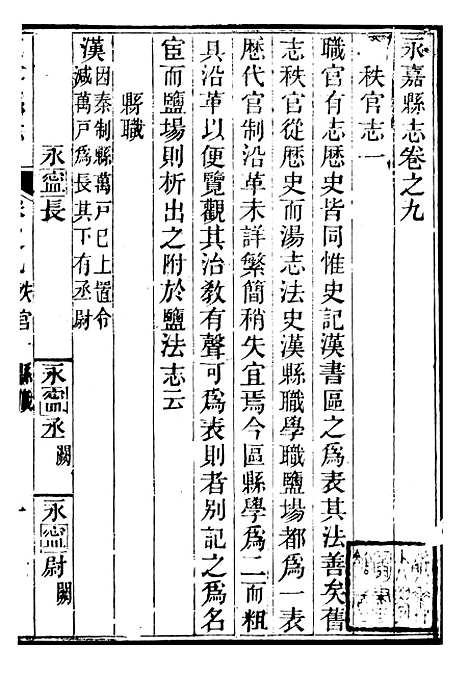 永嘉縣志卷之九
秩官志一
職官有志歷史皆同惟史記漢書區之爲表其法善矣舊
志秩官從歷史而湯志法史漢縣職學職鹽場都爲一表
歷代官制沿革未詳繁簡稍失宜焉今區縣學爲二而粗
具沿革以便覽觀其治敎有聲可爲表則者别記之爲名
宦而鹽場則析出之附於鹽法志云
縣職
漢因秦制縣萬戸已上置令
減萬戸爲長其下有丞尉
永寍長
永寍丞闕
永寍尉闕
卷之九秩官 縣職
一